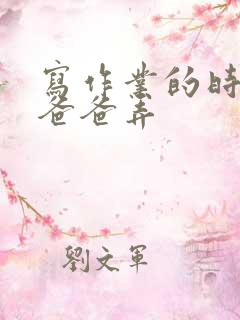 寫作業的時
爸爸弄
劉文軍